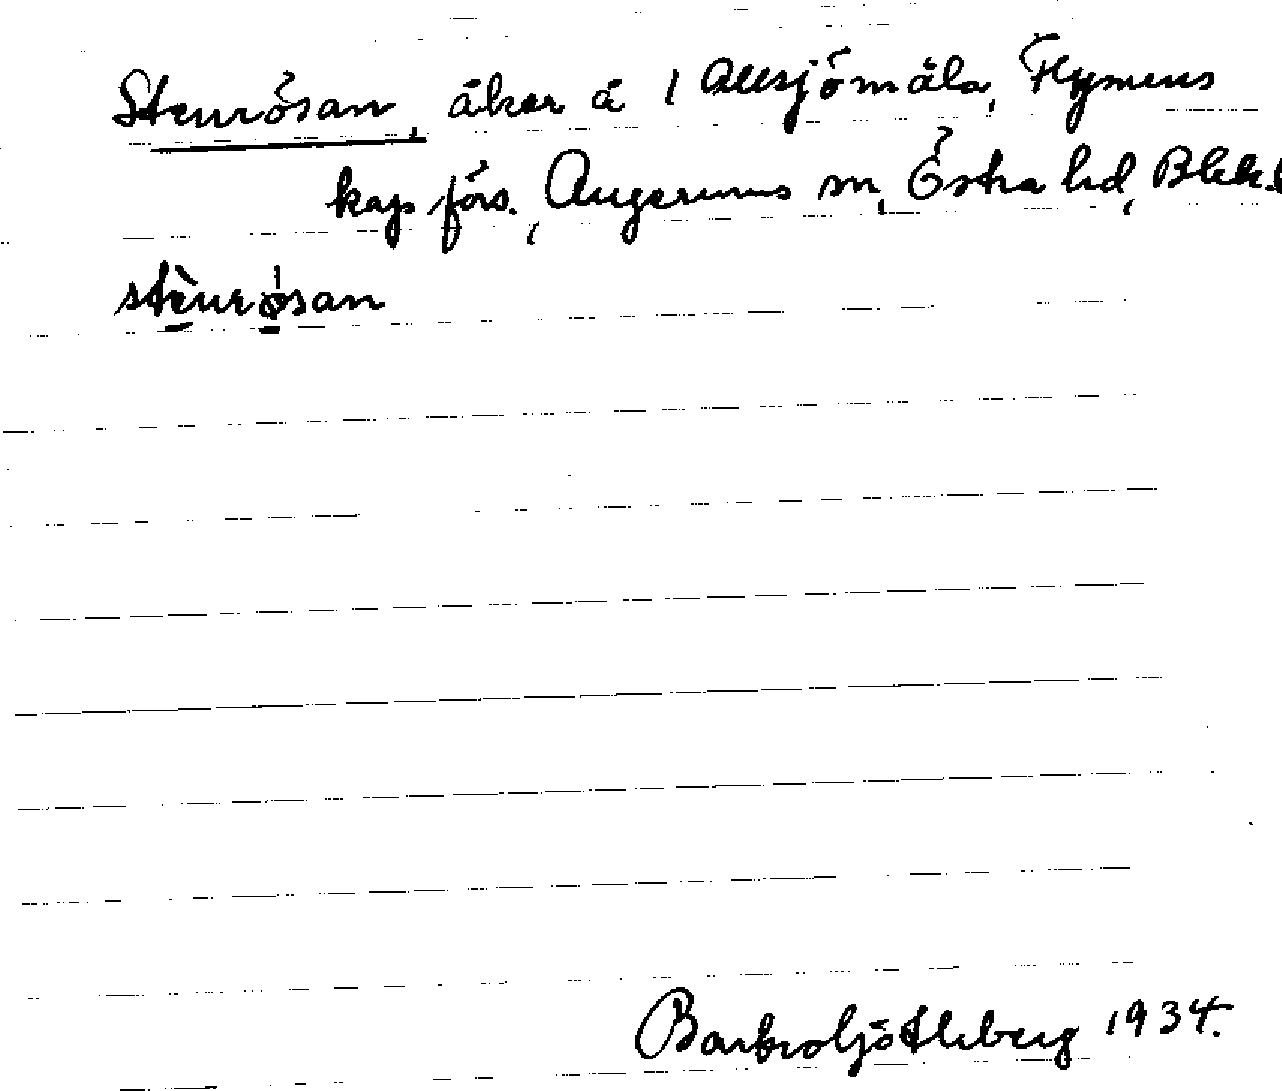 Stenrösan, åker å 1 Allsjömåla, Flymens
kap förs., Augerums sn, Östra hd, Blek.
stenrösan
Barbro Götleberg 1934.